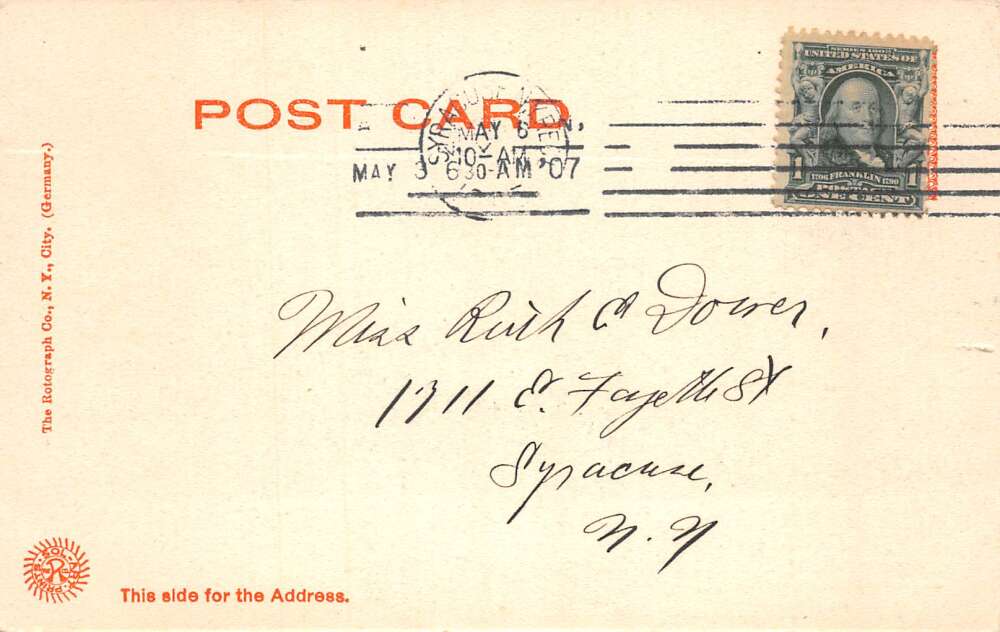 POST CARD
SERIES 1902
UNITED STATES OF
AMERICA
1706 FRANKLIN 1790
POSTAGE
1 ONE CENT 1
SYRACUSE
MAY 6
10-AM
MAY 3 630-AM '07
Miss Ruth E Dower,
1711 E. Fayette St
Syracuse,
N.Y
The Rotograph Co., N. Y., City. (Germany.)
SOL
ART PRINTS
R
This side for the Address.